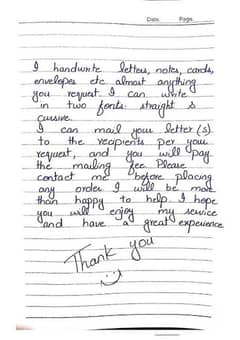 Date. Page.
I handwrite letters, notes, cards,
envelopes etc almost anything
you request. I can write
in two fonts straight &
cursive.
I can mail your letter(s)
to the recipients per your
request, and you will pay
the mailing fee. Please
contact me before placing
any order. I will be more
than happy to help. I hope
you will enjoy my service
and have a great experience
Thank you